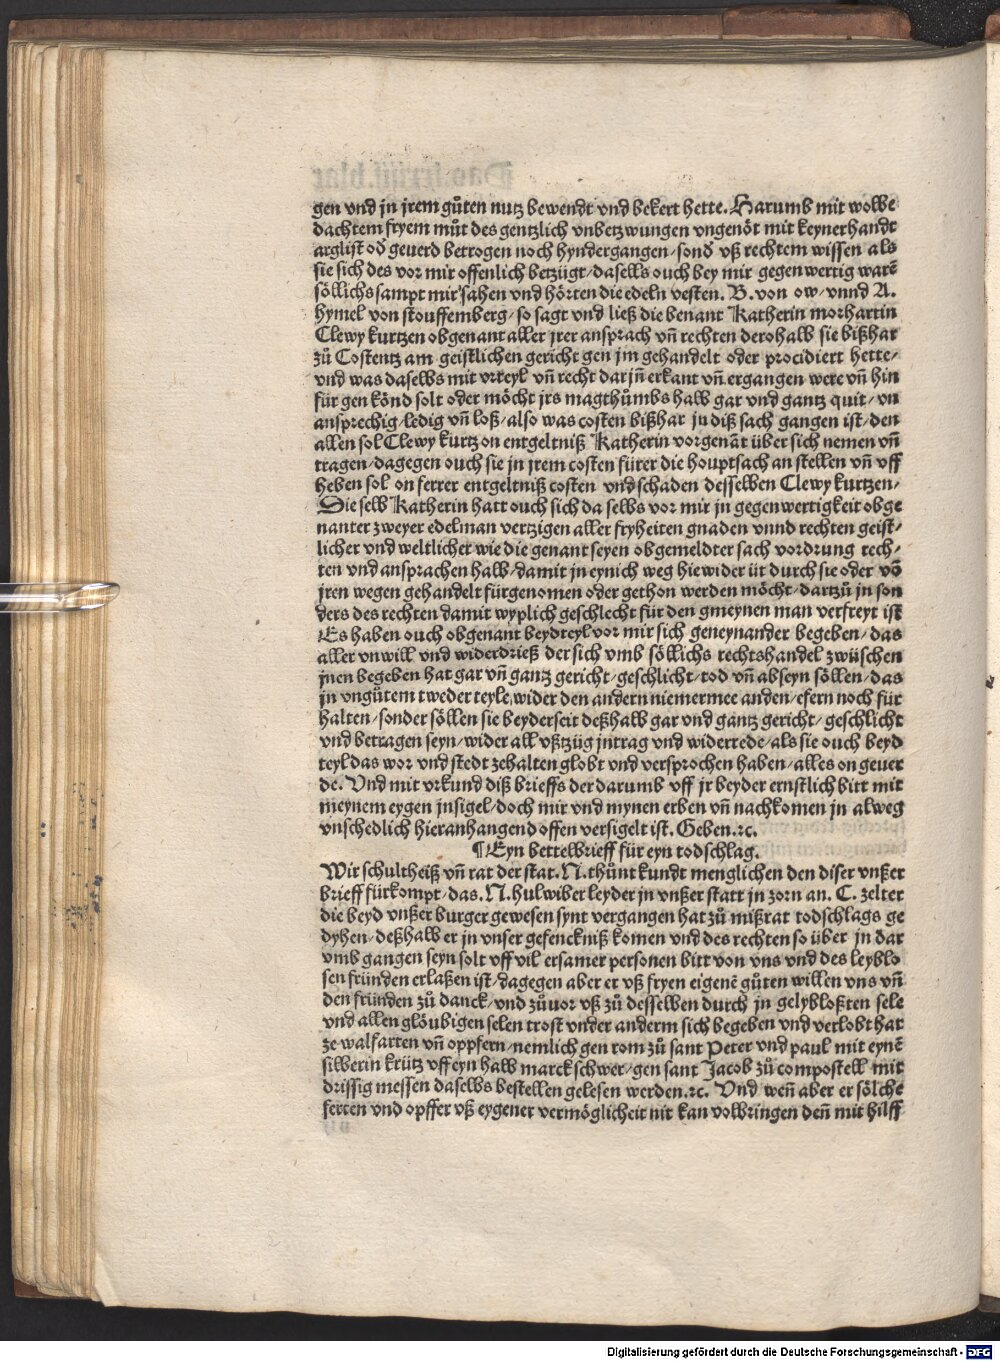 gen vnd jn jrem gůten nutz bewendt vnd bekert hette. Harumb mit wolbe
dachtem fryem můt des gentzlich vnbetzwungen vngenöt mit keynerhandt
arglist od geuerd betrogen noch hyndergangen/sond vß rechtem wissen als
sie sich des vor mir offenlich betzügt/daselbs ouch bey mir gegenwertig warē
söllichs sampt mir sahen vnd hörten die edeln vesten. B. von ow/vnnd A.
hymel von stouffemberg/so sagt vnd ließ die benant Katherin morhartin
Clewy kurtzen obgenant aller jrer ansprach vn̄ rechten derohalb sie bißhar
zů Costentz am geistlichen gericht gen jm gehandelt oder procidiert hette/
vnd was daselbs mit vrteyl vn̄ recht darjn̄ erkant vn̄ ergangen were vn̄ hin
für gen könd solt oder möcht jrs magthůmbs halb gar vnd gantz quit/vn
ansprechig/ledig vn̄ loß/also was costen bißhar jn diß sach gangen ist/den
allen sol Clewy kurtz on entgeltniß Katherin vorgenāt über sich nemen vn̄
tragen/dagegen ouch sie jn jrem costen fürer die houptsach an stellen vn̄ vff
heben sol on ferrer entgeltniß costen vnd schaden desselben Clewy kurtzen/
Die selb Katherin hatt ouch sich da selbs vor mir jn gegenwertigkeit obge
nanter zweyer edelman vertzigen aller fryheiten gnaden vnnd rechten geist/
licher vnd weltlicher wie die genant seyen obgemeldter sach vordrung rech/
ten vnd ansprachen halb/damit jn eynich weg hiewider üt durch sie oder vō
jren wegen gehandelt fürgenomen oder gethon werden möcht/dartzů jn son
ders des rechten damit wyplich geschlecht für den gmeynen man verfreyt ist
Es haben ouch obgenant beydteyl vor mir sich geneynander begeben/das
aller vnwill vnd widerdrieß der sich vmb söllichs rechtshandel zwüschen
jnen begeben hat gar vn̄ gantz gericht/geschlicht/tod vn̄ abseyn söllen/das
jn vngůtem tweder teyle wider den andern niemermee anden/efern noch für
halten/sonder söllen sie beyderseit deßhalb gar vnd gantz gericht/geschlicht
vnd betragen seyn/wider all vßtzüg jntrag vnd widerrede/als sie ouch beyd
teyl das wor vnd stedt zehalten globt vnd versprochen haben/alles on geuer
de. Vnd mit vrkund diß brieffs der darumb vff jr beyder ernstlich bitt mit
meynem eygen jnsigel/doch mir vnd mynen erben vn̄ nachkomen jn alweg
vnschedlich hieranhangend offen versigelt ist. Geben.⁊c.
¶Eyn bettelbrieff für eyn todschlag.
Wir schultheiß vn̄ rat der stat. N. thůnt kundt menglichen den diser vnßer
brieff fürkompt/das. N. hulwiber leyder jn vnßer statt jn zorn an. C. zelter
die beyd vnßer burger gewesen synt vergangen hat zů mißrat todschlags ge
dyhen/deßhalb er jn vnser gefenckniß komen vnd des rechten so über jn dar
vmb gangen seyn solt vff vil ersamer personen bitt von vns vnd des leyblo
sen fründen erlaßen ist/dagegen aber er vß fryen eigenē gůten willen vns vn̄
den fründen zů danck/vnd zůuor vß zů desselben durch jn gelybloßten sele
vnd allen glöubigen selen trost vnder anderm sich begeben vnd verlobt hat
ze walfarten vn̄ oppfern/nemlich gen rom zů sant Peter vnd paul mit eynē
silberin krütz vff eyn halb marck schwer/gen sant Jacob zů compostell mit
drissig messen daselbs bestellen gelesen werden.⁊c. Vnd wen̄ aber er sölche
ferten vnd opffer vß eygener vermöglicheit nit kan volbringen den̄ mit hilff
Digitalisierung gefördert durch die Deutsche Forschungsgemeinschaft - DFG